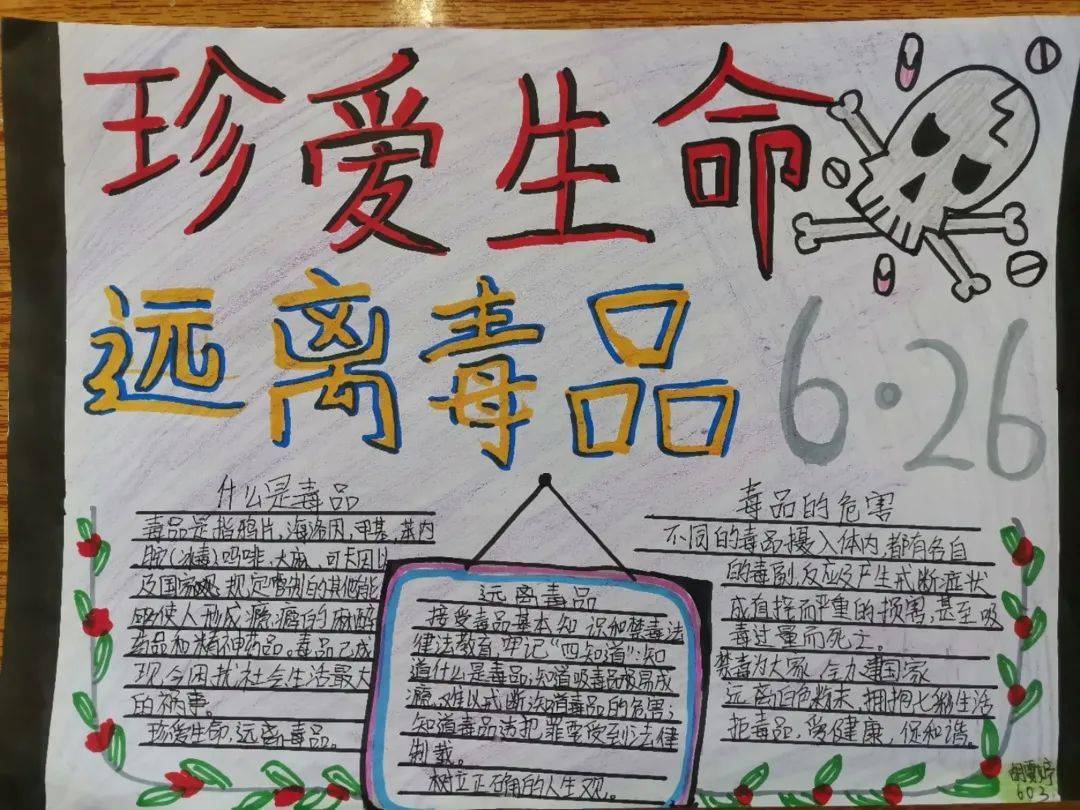 珍爱生命
远离毒品
6·26
什么是毒品
毒品是指鸦片、海洛因、甲基苯丙
胺(冰毒)、吗啡、大麻、可卡因以
及国家规定管制的其他能
够使人形成瘾癖的麻醉
药品和精神药品。毒品已成
现今困扰社会生活最大
的祸事。
珍爱生命,远离毒品。
远离毒品
接受毒品基本知识和禁毒法
律法教育,牢记“四知道”:知
道什么是毒品;知道吸毒品极易成
瘾,难以戒断;知道毒品的危害;
知道毒品违犯罪要受到法律
制裁。
树立正确的人生观。
毒品的危害
不同的毒品摄入体内,都有各自
的毒副反应及产生戒断症状
成直接而严重的损害,甚至吸
毒过量而死亡。
禁毒为大家,合力建国家
远离白色粉末,拥抱七彩生活
拒毒品,爱健康,促和谐。
603